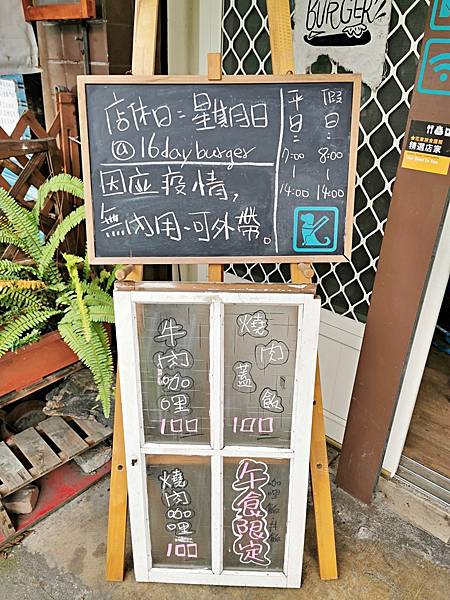 BURGER
店休日：星期日
@16dayburger
因应疫情,
無內用、可外帶。
平日：
7:00
|
14:00
假日：
8:00
|
14:00
精選店家
牛肉咖哩
100
燒肉蓋飯
100
燒肉咖哩
100
午食限定